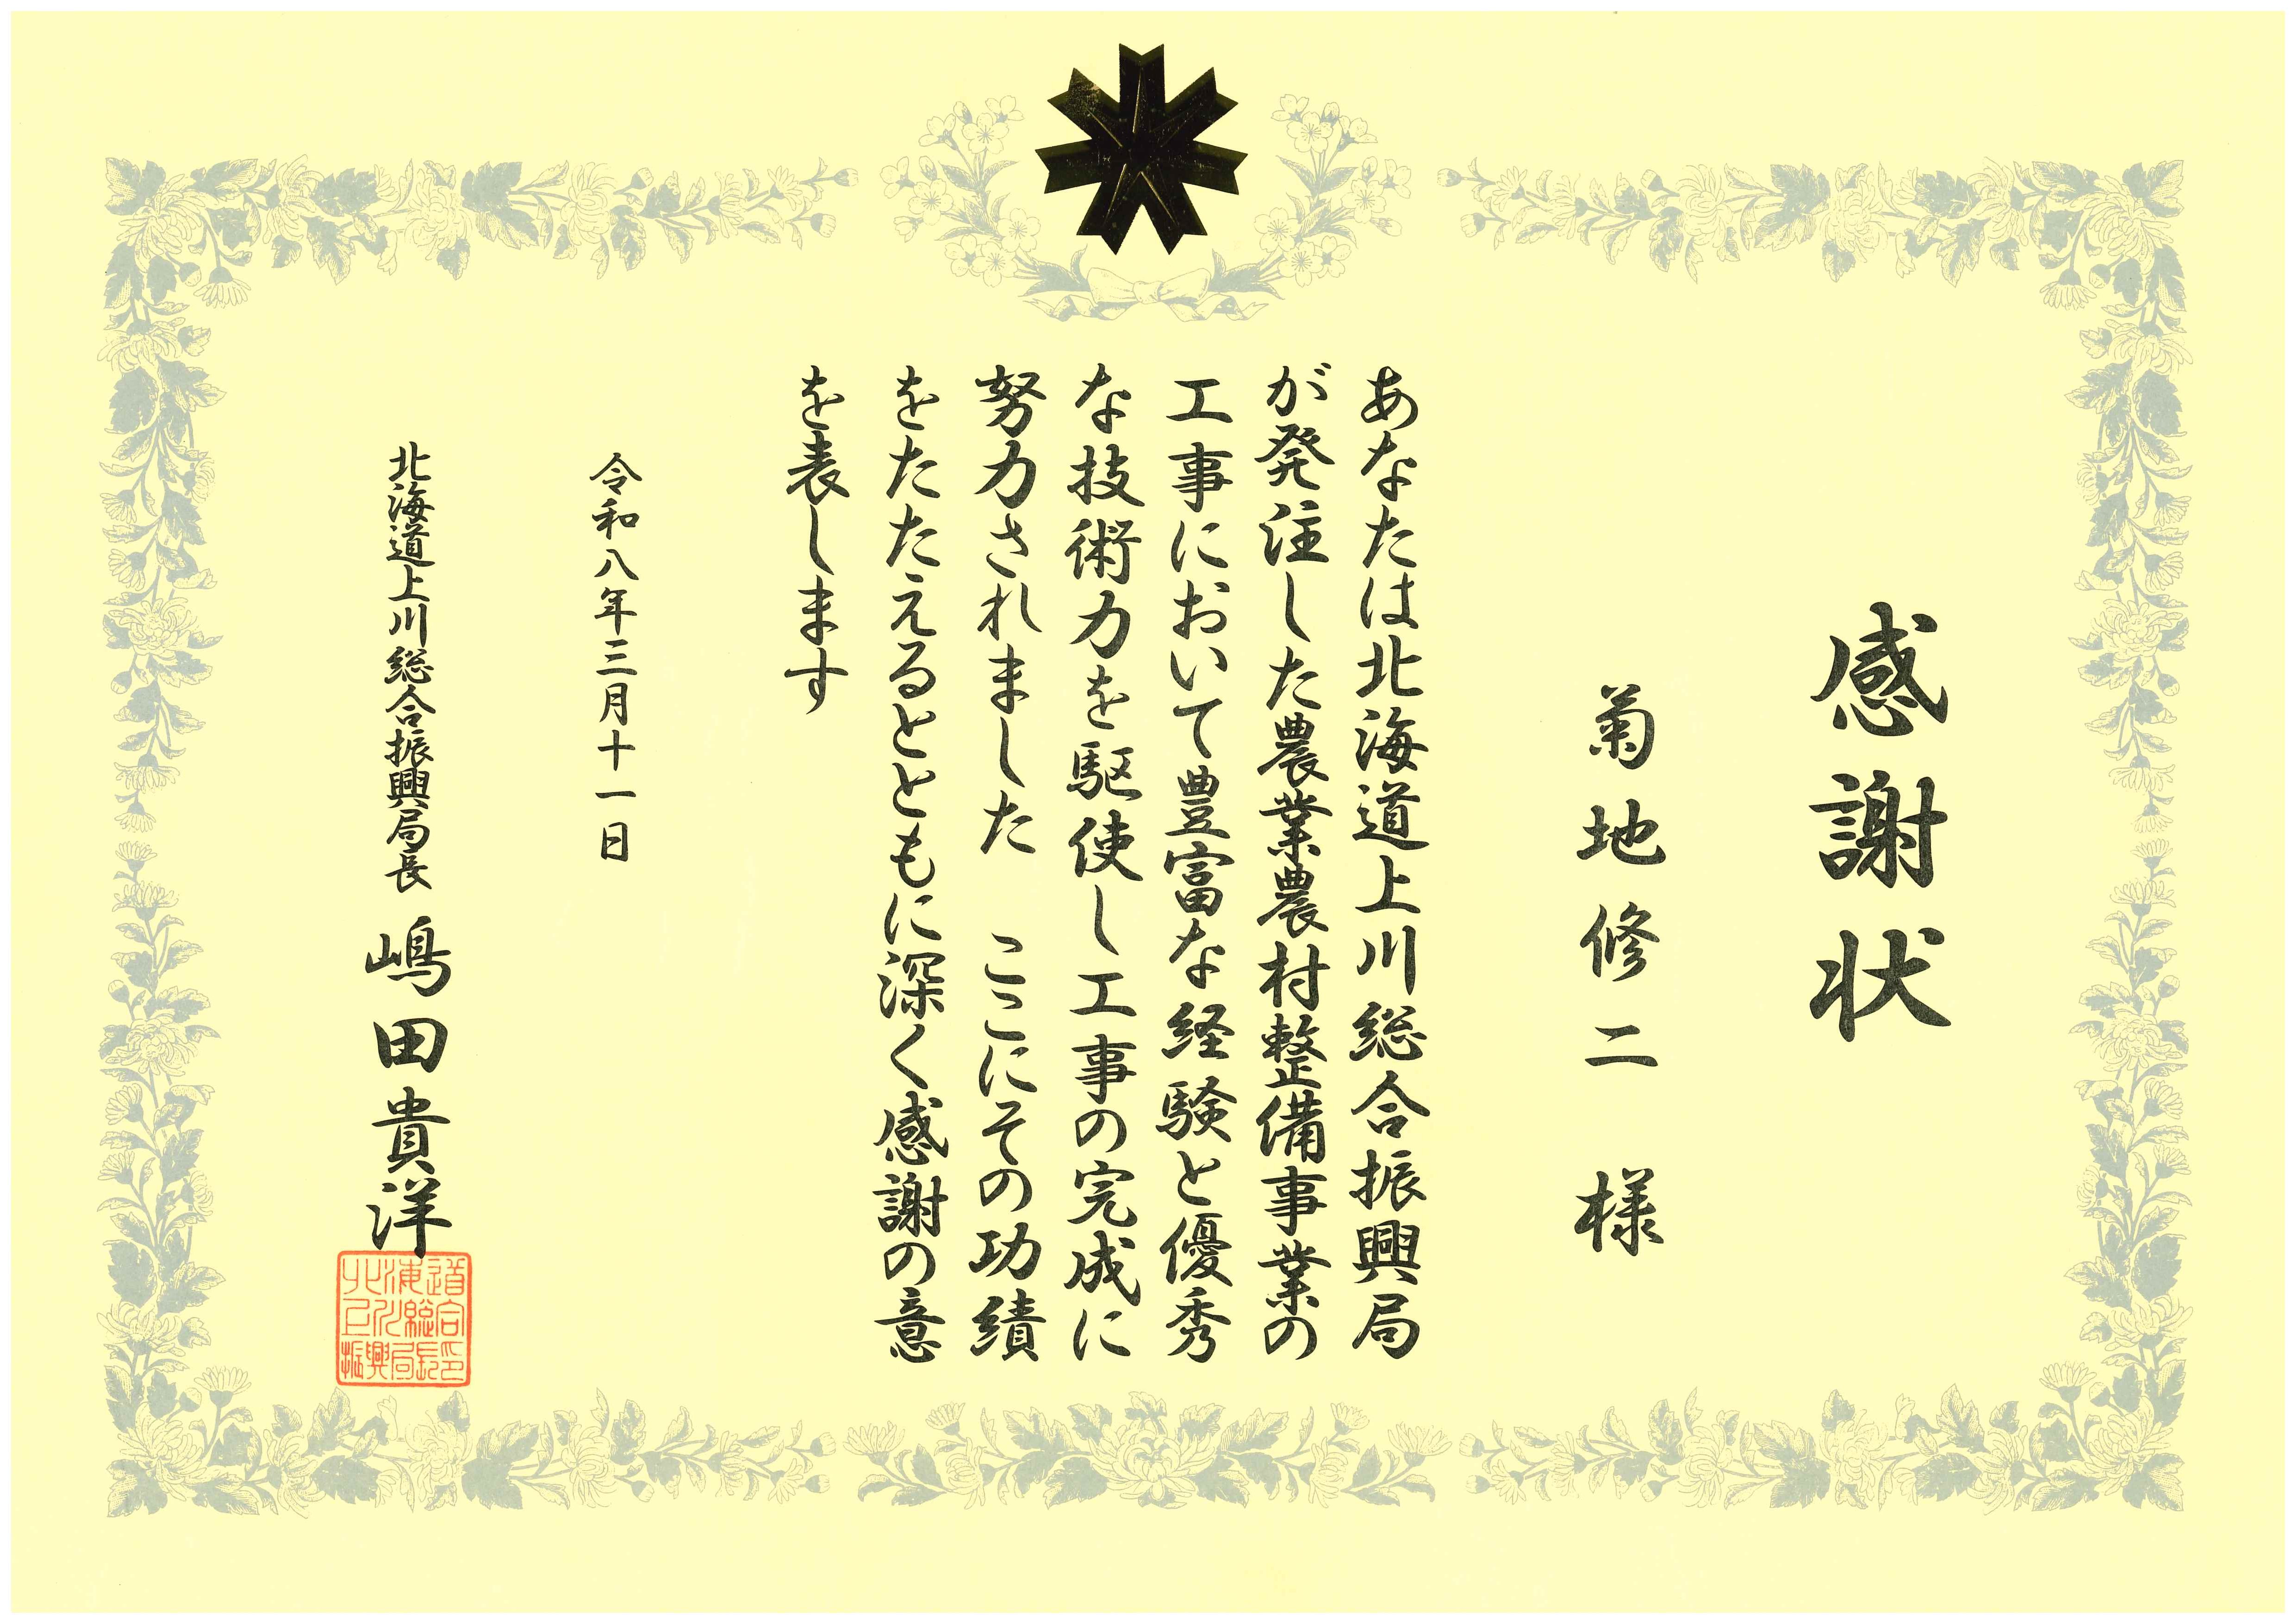 感謝状
菊地修二 様
あなたは北海道上川総合振興局
が発注した農業農村整備事業の
工事において豊富な経験と優秀
な技術力を駆使し工事の完成に
努力されました ここにその功績
をたたえるとともに深く感謝の意
を表します
令和八年三月十一日
北海道上川総合振興局長 嶋田貴洋
北海道
上川総合
振興局長印